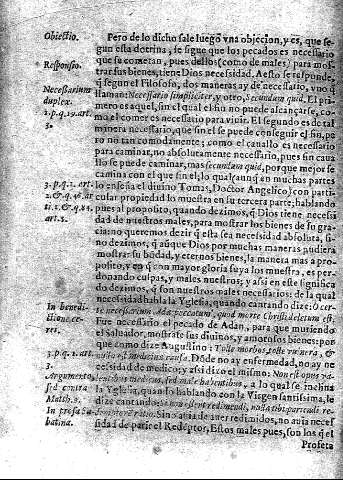 Obiectio.
Responsio.
Necessarium
duplex.
1.p.q.19.art.
3.
3.p.q.1. art.
2. & q.46.ar
1. & q.
art.2.
In benedi
ctione ce-
rei.
3.p.q.1. art.
3.
Argumento,
sed contra
Matth.9.
In præfa
batina.
Pero de lo dicho sale luego vna objeccion, y es, que se-
gun esta dotrina, se sigue que los pecados es necessario
que se cometan, pues dellos (como de males) para mos-
trar sus bienes, tiene Dios necessidad. A esto se responde,
q̃ segun el Filosofo, dos maneras ay de necessario, vno q̃
llaman: Necessario simpliciter, y otro, Secundum quid. El pri-
mero es aquel, sin el qual el fin no puede alcançarse, co-
mo el comer es necessario para viuir. El segundo es de tal
manera necessario, que sin el se puede conseguir el fin, pe
ro no tan comodamente; como el cauallo es necessario
para caminar, no absolutamente necessario, pues sin caua
llo se puede caminar, mas secundum quid, porque mejor se
camina con el que sin el; lo qual en muchas partes
lo enseña el diuino Tomas, Doctor Angelico; y con parti-
cular propiedad lo muestra en su tercera parte; hablando
pues al proposito, quando dezimos, q̃ Dios tiene necessi
dad de nuestros males, para mostrar los bienes de su gra-
cia: no queremos dezir q̃ esta sea necessidad absoluta, si-
no dezimos, q̃ aũque Dios por muchas maneras pudiera
mostrar su bõdad, y eternos bienes, la manera mas a pro-
posito, y en q̃ con mayor gloria suya los muestra, es per-
donando culpas, y males nuestros; y assi en este significa
do dezimos, q̃ son nuestros males necessarios: de la qual
necessidad habla la Yglesia, quando cantando dize: O cer-
te necessarium Adæ peccatum, quod morte Christi deletum est.
Fue necessario el pecado de Adan, para que muriendo
el Saluador, mostrasse sus diuinos, y amorosos bienes: por
que como dize Augustino: Tolle morbos, tolle vulnera, &
nulla est medicinæ causa. Dõde no ay enfermedad, no ay ne
cessidad de medico; y assi dixo el mismo: Non est opus va-
lentibus medicus, sed male habentibus, a lo qual se inclina
la Yglesia, quando hablando con la Virgen santissima, le
dize cantando:
Sino auia de auer redimidos, no auia neces
sidad de parir el Redẽptor, Estos males pues, son los q̃ el
Profeta